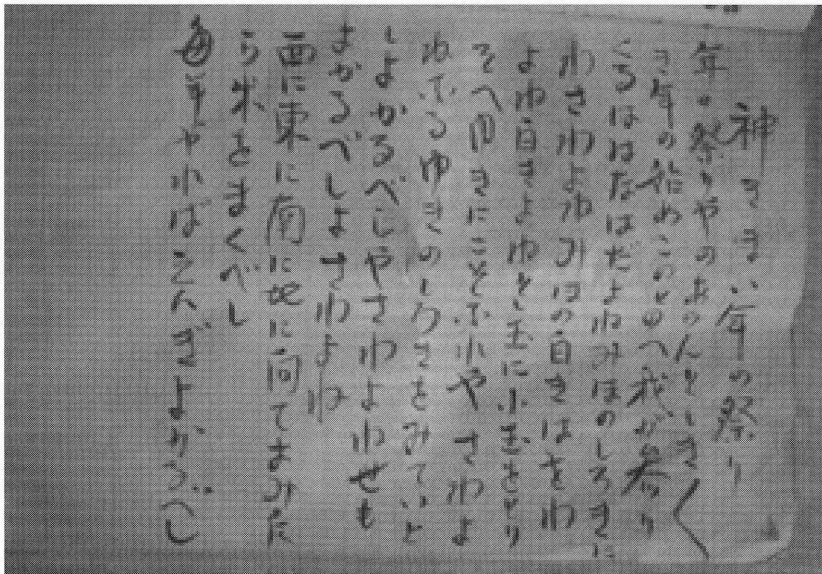 神きまい年の祭り
年の祭りやのあらんとしき〱
き年の始めこのとのへ我が参り
くるははだはだよねみほのしろきに
わさわよねみほの白きはをわ
よね白きよねと玉に小玉をとり
そへゆきにこそふれや さわよ
ねふるゆきのしろさをみていと
しよかるべしやさわよねせも
よかるべしよさわよね
西に東に南に北に向てまみた
ら米をまくべし
毎年やればえんぎよかるべし